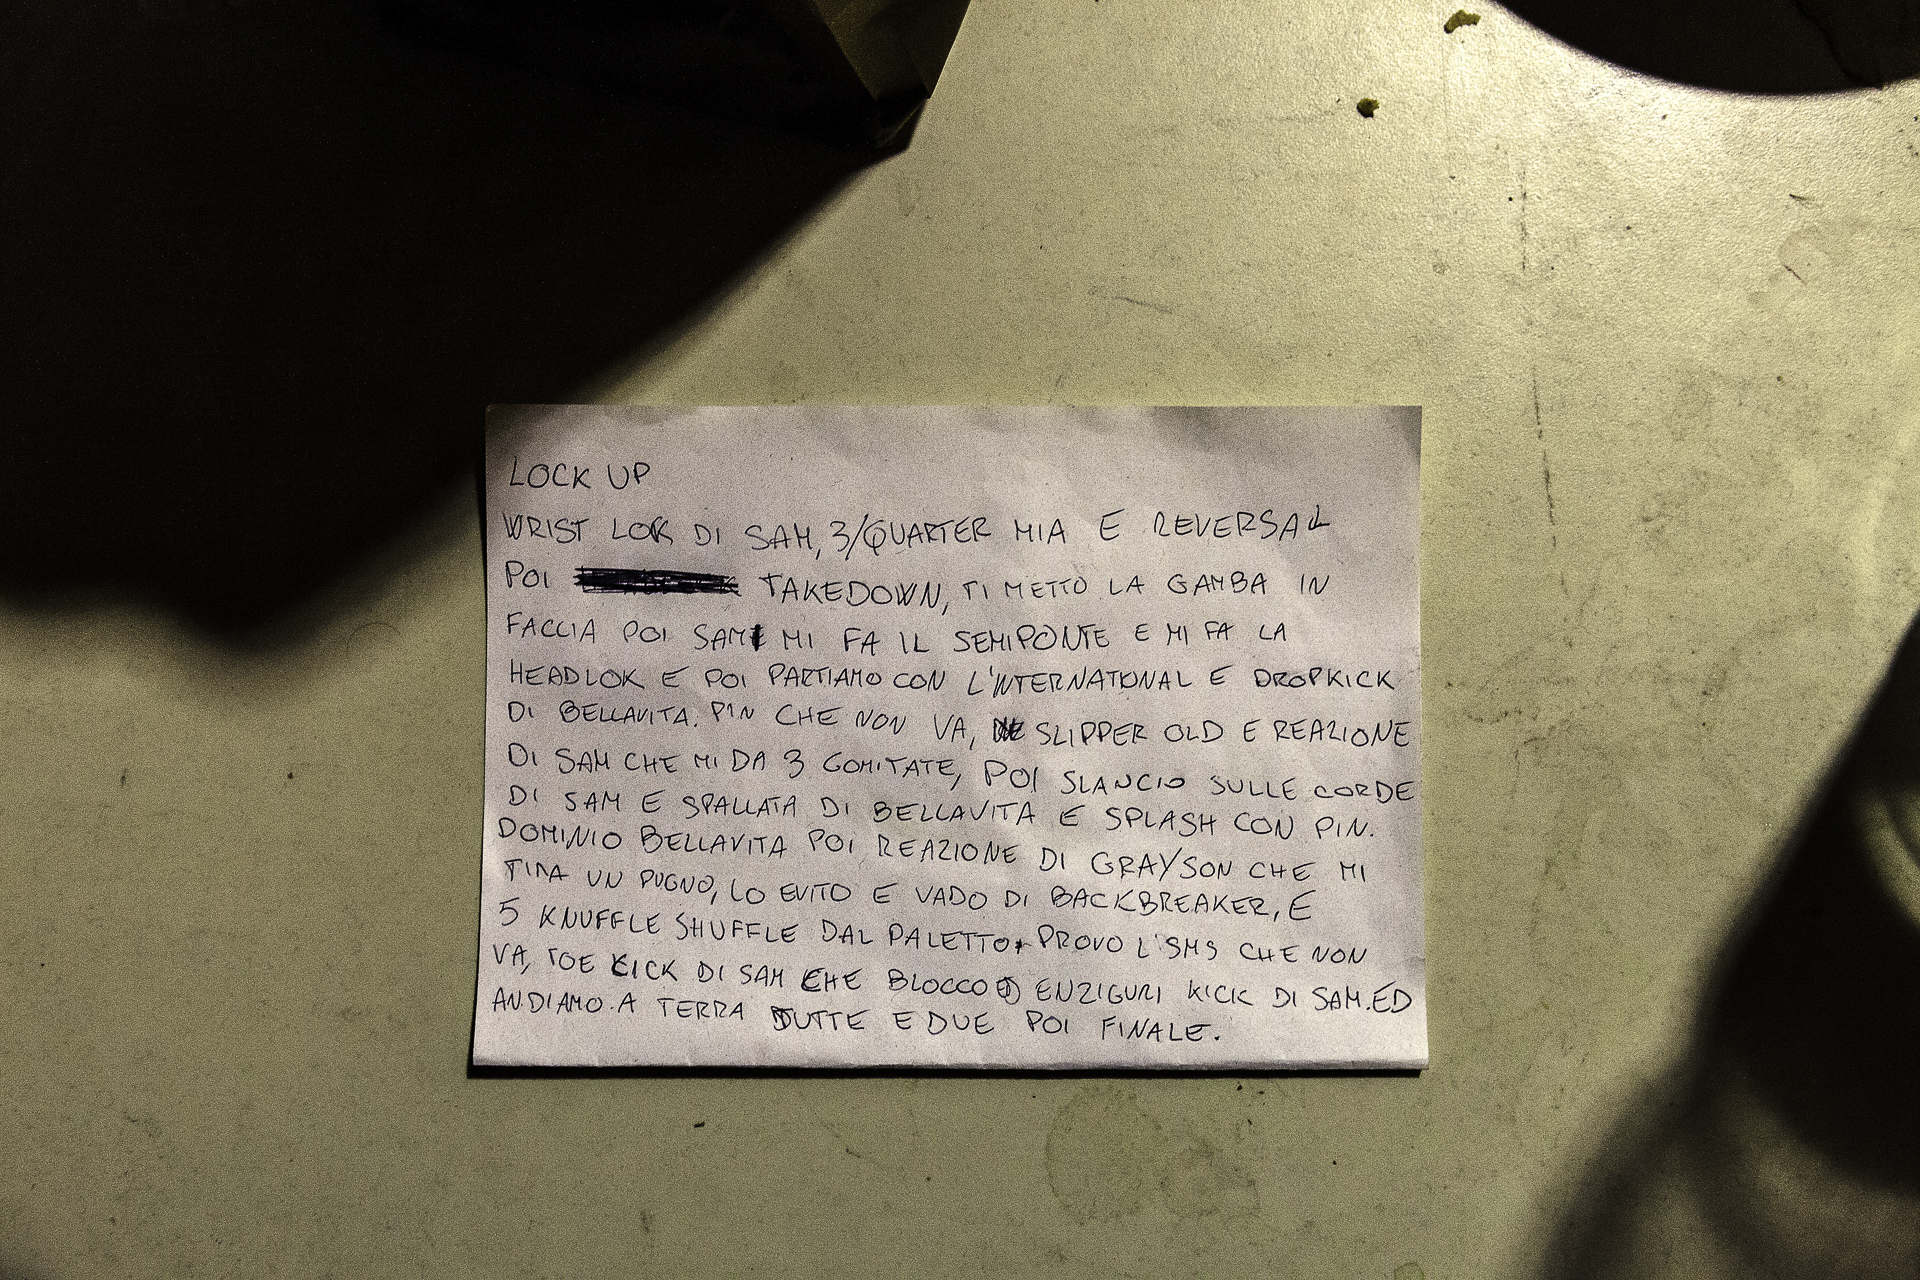 LOCK UP
WRIST LOK DI SAM, 3/QUARTER MIA E REVERSAL
POI TAKEDOWN, TI METTO LA GAMBA IN
FACCIA POI SAM MI FA IL SEMIPONTE E MI FA LA
HEADLOK E POI PARTIAMO CON L'INTERNATIONAL E DROPKICK
DI BELLAVITA. PIN CHE NON VA, SLIPPER OLD E REAZIONE
DI SAM CHE MI DA 3 GOMITATE, POI SLANCIO SULLE CORDE
DI SAM E SPALLATA DI BELLAVITA E SPLASH CON PIN.
DOMINIO BELLAVITA POI REAZIONE DI GRAYSON CHE MI
TIRA UN PUGNO, LO EVITO E VADO DI BACKBREAKER, E
5 KNUFFLE SHUFFLE DAL PALETTO. PROVO L'SMS CHE NON
VA, TOE KICK DI SAM CHE BLOCCO ENZIGURI KICK DI SAM. ED
ANDIAMO A TERRA TUTTE E DUE POI FINALE.